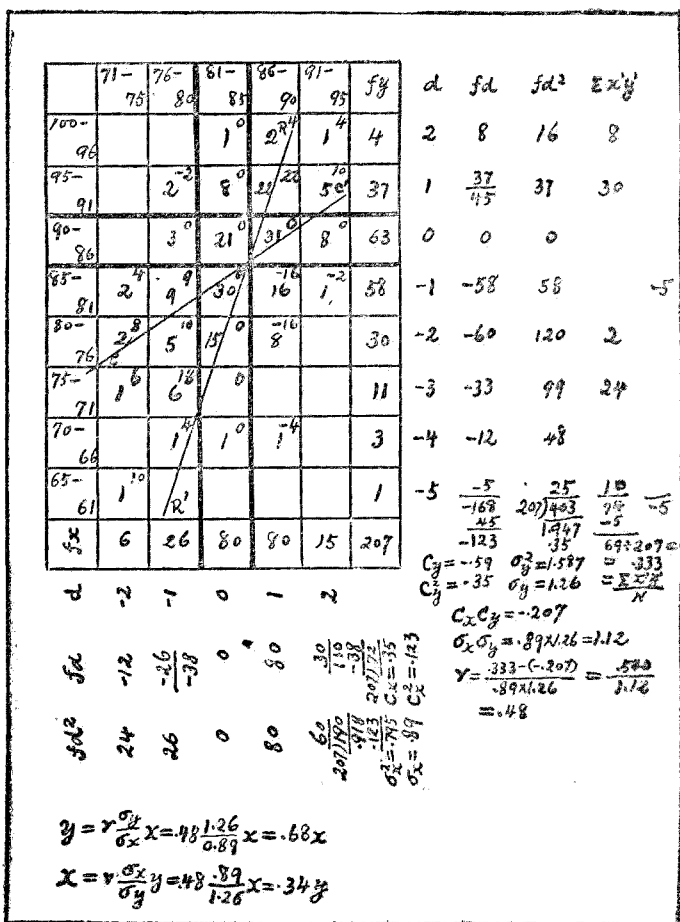 71-75 76-80 81-85 86-90 91-95 fy d fd fd² Σx'y'
100-96 1⁰ 2⁴ R 1⁴ 4 2 8 16 8
95-91 2⁻² 8⁰ 22²² 5¹⁰ C 37 1 37 37 30
45
90-86 3⁰ 21⁰ 31⁰ 8⁰ 63 0 0 0
85-81 2⁴ 9⁹ 30⁰ 16⁻¹⁶ 1⁻² 58 -1 -58 58 -5
80-76 2⁸ C 5¹⁰ 15⁰ 8⁻¹⁶ 30 -2 -60 120 2
75-71 1⁶ 6¹⁸ 0 11 -3 -33 99 24
70-66 1⁴ 1⁰ 1⁻⁴ 3 -4 -12 48
65-61 1¹⁰ R' 1 -5 -5 25 10
-168 207)403 -5 -5
45 1.947
-123 .35 69÷207=
fx 6 26 80 80 15 207
Cy=-.59 σy²=1.587 = .333
Cy²=.35 σy=1.26 = Σx'y'/N
d -2 -1 0 1 2
CxCy=-.207
σxσy=.89×1.26=1.12
r= .333-(-.207)/.89×1.26 = .540/1.12
=.48
fd -12 -26 0 80 30
-38 110
-38
207)72
Cx=.35
Cx²=.123
fd² 24 26 0 80 60
207)190
.918
.123
σx²=.795
σx=.89
y = r σy/σx x = .48 1.26/0.89 x = .68x
x = r σx/σy y = .48 .89/1.26 x = .34y